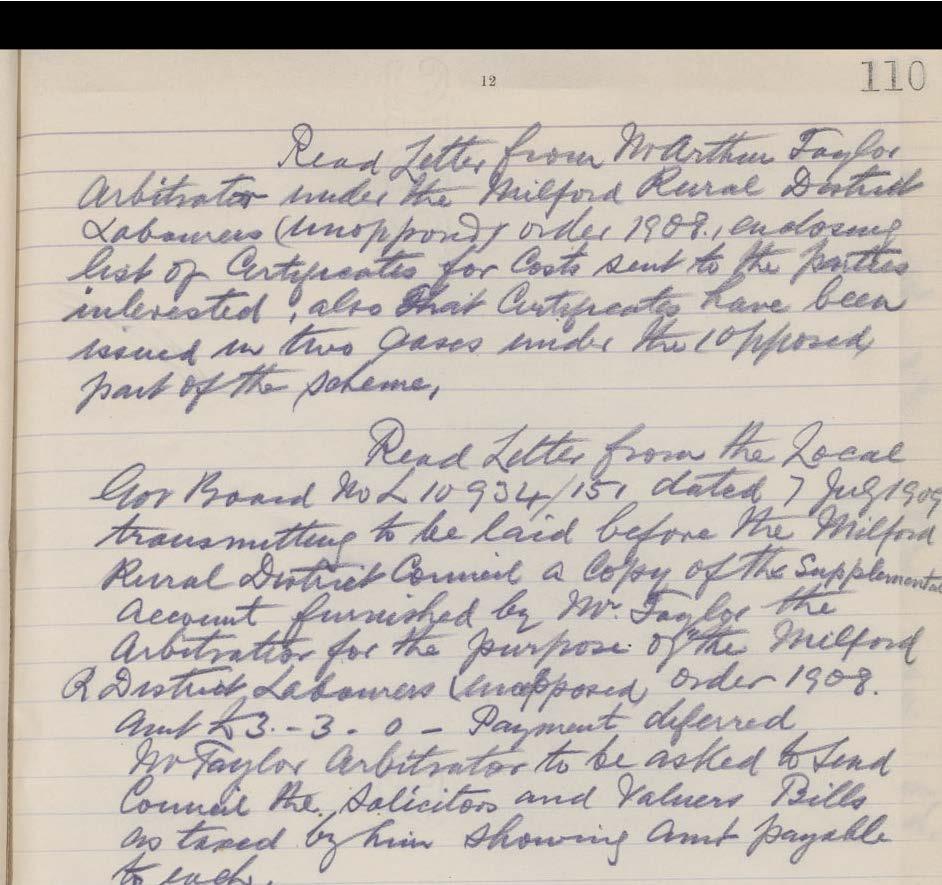 12
110
Read Letter from Mr Arthur Taylor
Arbitrator under the Milford Rural District
Labourers (unopposed) order 1908, enclosing
list of Certificates for Costs sent to the parties
interested, also that Certificates have been
issued in two Cases under the (opposed)
part of the Scheme,
Read Letter from the Local
Gov Board No L 10934/151 dated 7 July 1909
transmitting to be laid before the Milford
Rural District Council a Copy of the Supplemental
Account furnished by Mr. Taylor the
Arbitrator for the purpose of the Milford
R District Labourers (unopposed) order 1908.
Amt £3.-3.0 - Payment deferred
Mr Taylor Arbitrator to be asked to Send
Council the Solicitors and Valuers Bills
as taxed by him showing amt payable
to each.